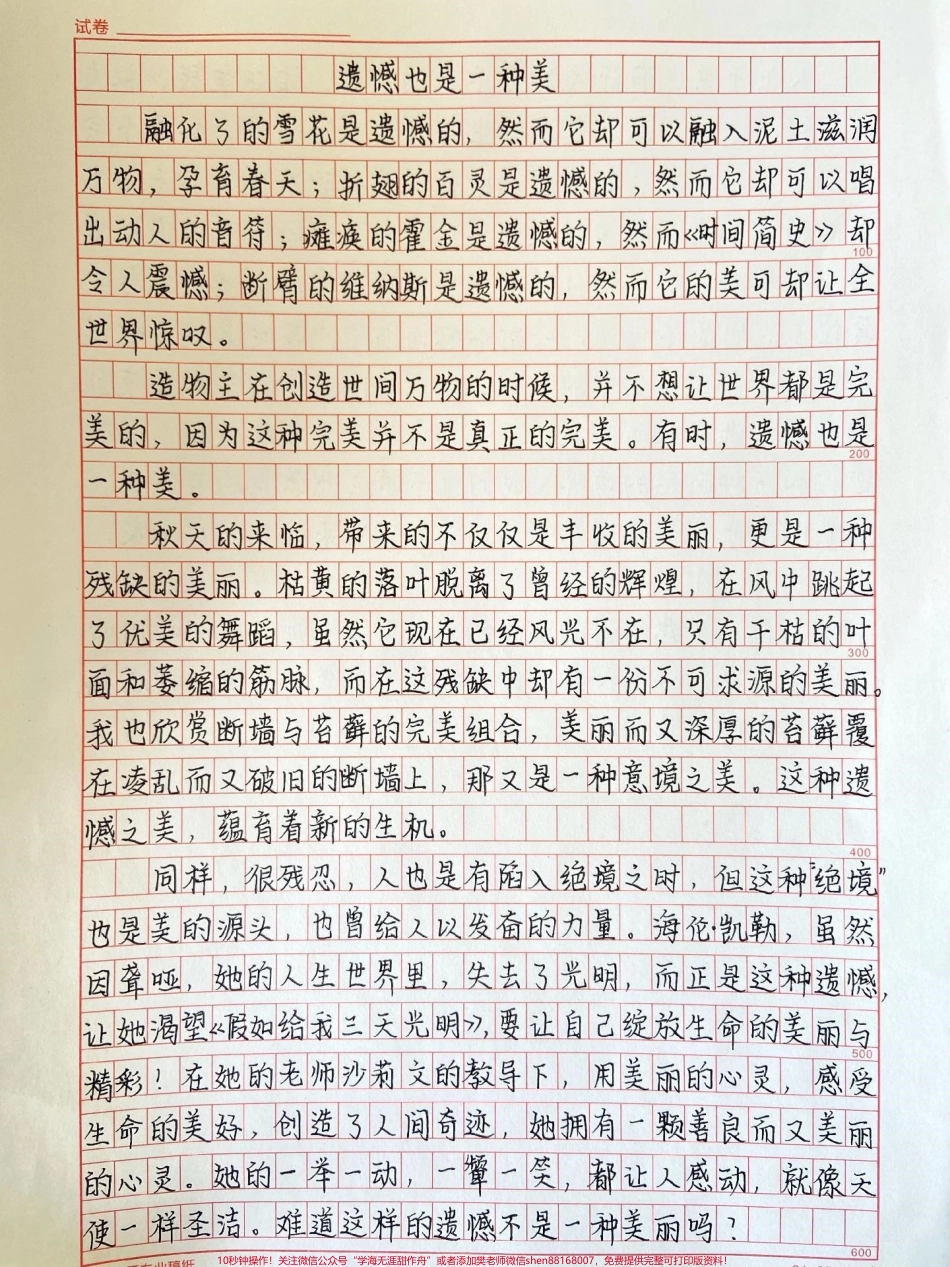 试卷
遗憾也是一种美
融化了的雪花是遗憾的，然而它却可以融入泥土滋润
万物，孕育春天；折翅的百灵是遗憾的，然而它却可以唱
出动人的音符；瘫痪的霍金是遗憾的，然而《时间简史》却
100
令人震憾；断臂的维纳斯是遗憾的，然而它的美可却让全
世界惊叹。
造物主在创造世间万物的时候，并不想让世界都是完
美的，因为这种完美并不是真正的完美。有时，遗憾也是
200
一种美。
秋天的来临，带来的不仅仅是丰收的美丽，更是一种
残缺的美丽。枯黄的落叶脱离了曾经的辉煌，在风中跳起
了优美的舞蹈，虽然它现在已经风光不在，只有干枯的叶
300
面和萎缩的筋脉，而在这残缺中却有一份不可求源的美丽。
我也欣赏断墙与苔藓的完美组合，美丽而又深厚的苔藓覆
在凌乱而又破旧的断墙上，那又是一种意境之美。这种遗
憾之美，蕴育着新的生机。
400
同样，很残忍，人也是有陷入绝境之时，但这种“绝境”
也是美的源头，也曾给人以发奋的力量。海伦·凯勒，虽然
因聋哑，她的人生世界里，失去了光明，而正是这种遗憾，
让她渴望《假如给我三天光明》，要让自己绽放生命的美丽与
500
精彩！在她的老师沙莉文的教导下，用美丽的心灵，感受
生命的美好，创造了人间奇迹，她拥有一颗善良而又美丽
的心灵。她的一举一动，一颦一笑，都让人感动，就像天
使一样圣洁。难道这样的遗憾不是一种美丽吗？
600
10秒钟操作！关注微信公众号“学海无涯甜作舟”或者添加樊老师微信shen88168007，免费提供完整可打印版资料！